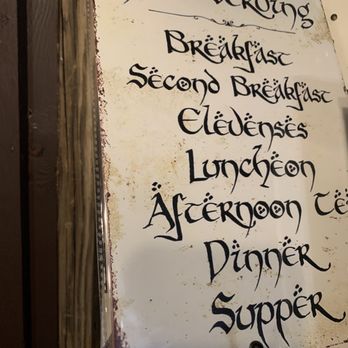 Breakfast
Second Breakfast
Elevenses
Luncheon
Afternoon Te
Dinner
Supper